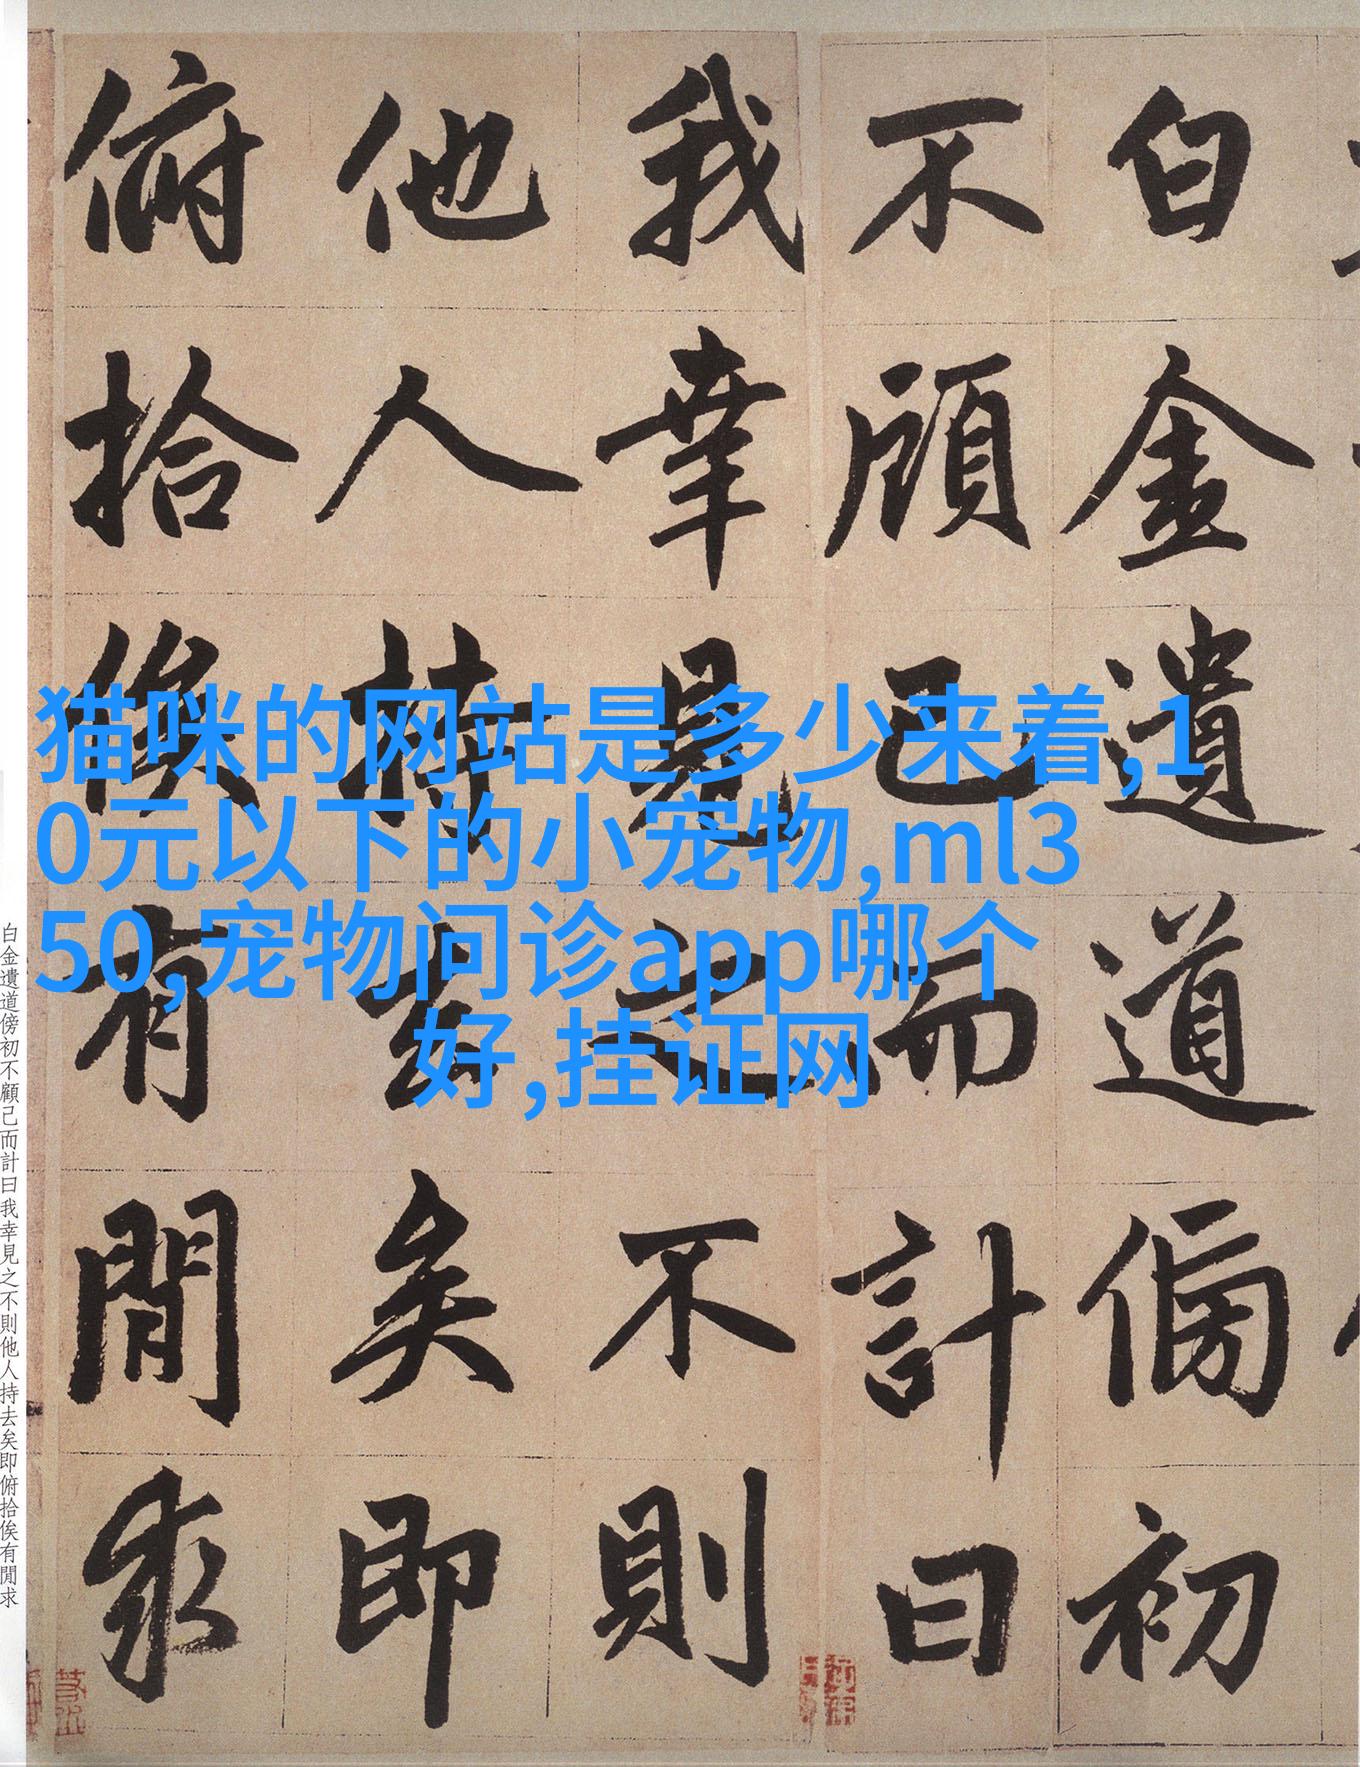 白金遺道傍初
不顧己而計曰
我幸見之不則
他人持去矣即
俯拾俟有閒求
猫咪的网站是多少来着,1
0元以下的小宠物,ml3
50,宠物问诊app哪个
好,挂证网
白金遺道傍初不顧己而計曰我幸見之不則他人持去矣即俯拾俟有閒求